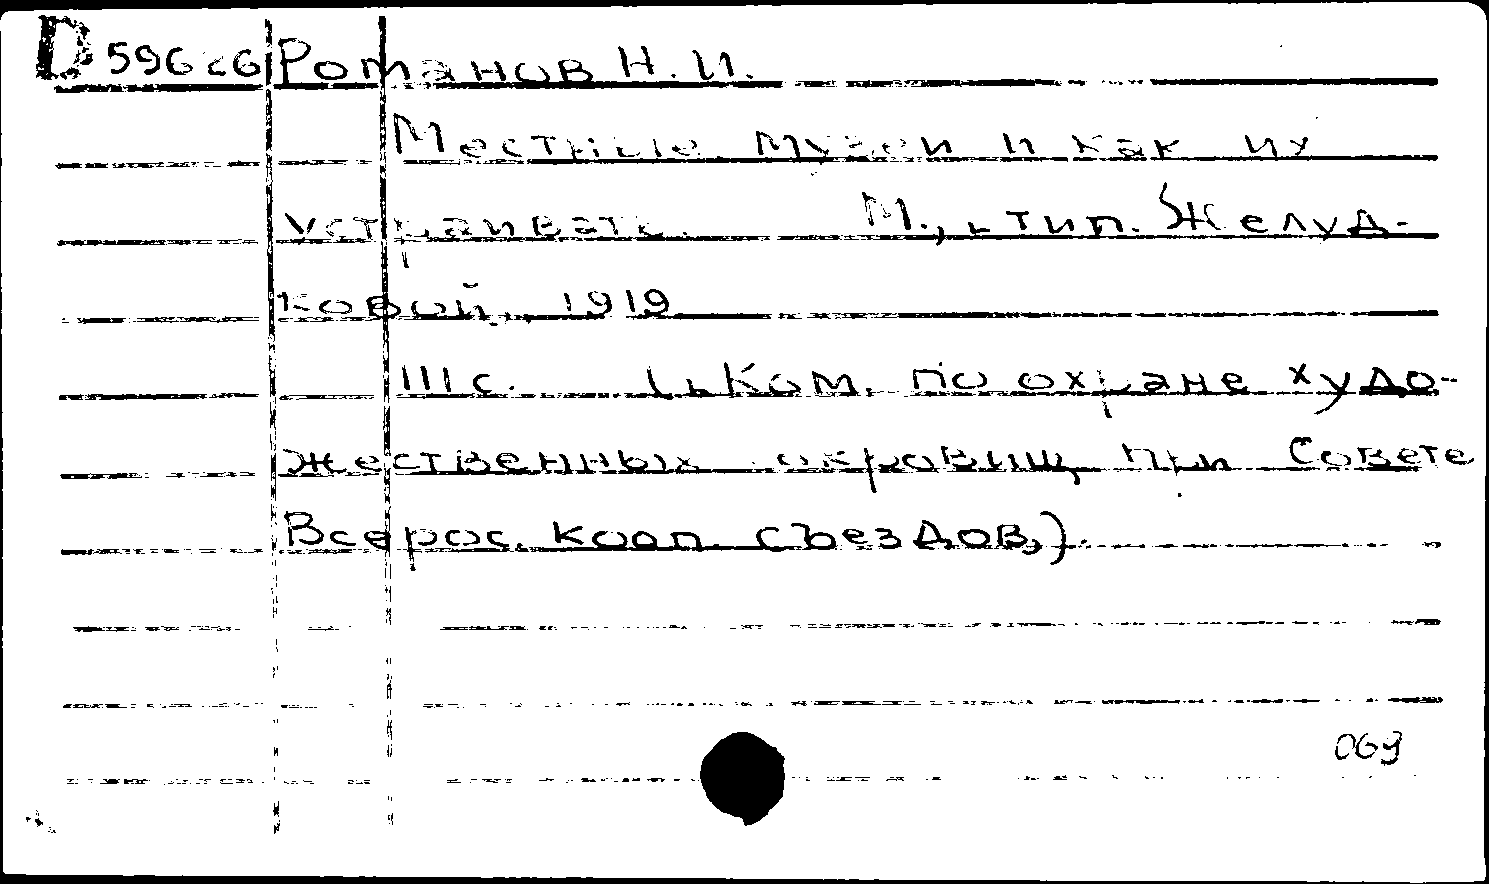 D 59626 Романов Н. И.
Местные музеи и как их
устраивать. М., тип. Желуд-
ковой, 1919
111 с. (Ком. по охране худо-
жественных сокровищ при Совете
Всерос. кооп. съездов,).
069